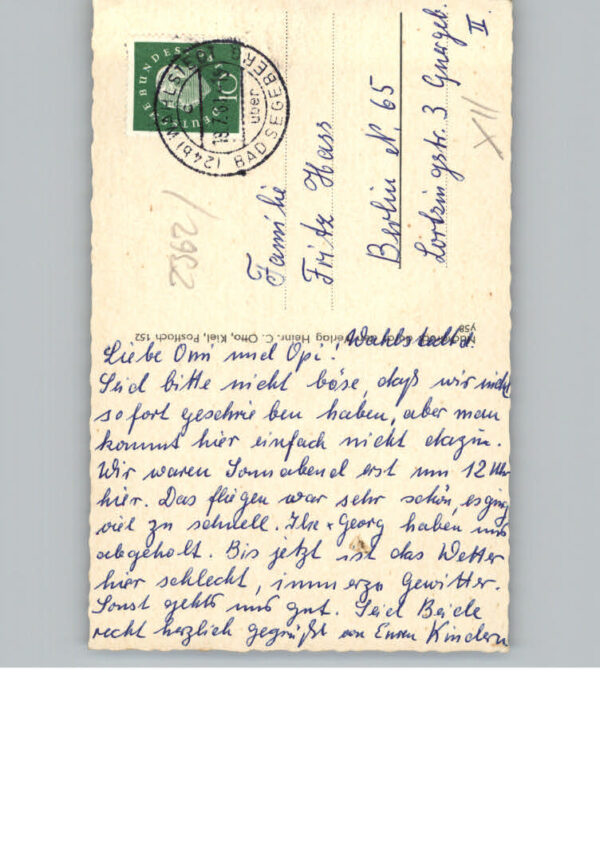 DEUTSCHE BUNDESPOST
10
(24b) WAHLSTEDT
über
BAD SEGEBERG
Familie
Fritz Hass
Berlin N. 65
Lortzingstr. 3 Quergeb.
II
XII
/2952
Verlag Heinr. C. Otto, Kiel, Postfach 152
Wahlstedt.
Liebe Omi und Opi!
Seid bitte nicht böse, daß wir nicht
sofort geschrieben haben, aber man
kommt hier einfach nicht dazu.
Wir waren Sonnabend erst um 12 Uhr
hier. Das fliegen war sehr schön, es ging
viel zu schnell. Ilse + Georg haben uns
abgeholt. Bis jetzt ist das Wetter
hier schlecht, immerzu Gewitter.
Sonst gehts uns gut. Seid Beide
recht herzlich gegrüßt von Euren Kindern